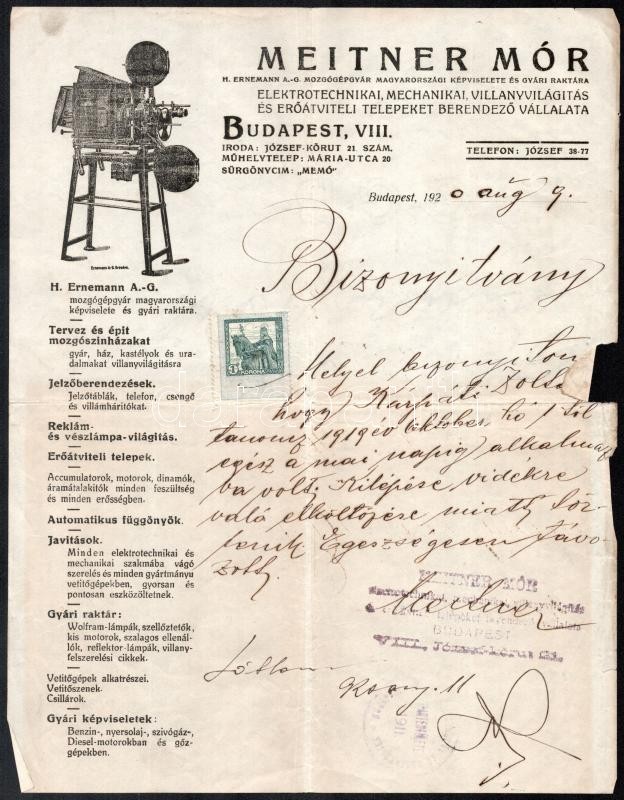 MEITNER MÓR
H. ERNEMANN A.-G. MOZGÓGÉPGYÁR MAGYARORSZÁGI KÉPVISELETE ÉS GYÁRI RAKTÁRA
ELEKTROTECHNIKAI, MECHANIKAI, VILLANYVILÁGITÁS
ÉS ERŐÁTVITELI TELEPEKET BERENDEZŐ VÁLLALATA
BUDAPEST, VIII.
IRODA: JÓZSEF-KÖRUT 21. SZÁM.
MŰHELYTELEP: MÁRIA-UTCA 20
SÜRGÖNYCIM: „MEMÓ”
TELEFON: JÓZSEF 38-77
Ernemann A.G. Dresden.
Budapest, 1920 aug 9.
Bizonyitvány
H. Ernemann A.-G.
mozgógépgyár magyarországi
képviselete és gyári raktára.
Tervez és épit
mozgószinházakat
gyár, ház, kastélyok és ura-
dalmakat villanyvilágitásra
Jelzőberendezések.
Jelzőtáblák, telefon, csengő
és villámháritókat.
Reklám-
és vészlámpa-világitás.
Erőátviteli telepek.
Accumulatorok, motorok, dinamók,
áramátalakitók minden feszültség
és minden erősségben.
Automatikus függönyök.
Javitások.
Minden elektrotechnikai és
mechanikai szakmába vágó
szerelés és minden gyártmányu
vetitőgépekben, gyorsan és
pontosan eszközöltetnek.
Gyári raktár:
Wolfram-lámpák, szellőztetők,
kis motorok, szalagos ellenál-
lók, reflektor-lámpák, villany-
felszerelési cikkek.
Vetitőgépek alkatrészei.
Vetitőszenek.
Csillárok.
Gyári képviseletek:
Benzin-, nyersolaj-, szivógáz-,
Diesel-motorokban és gőz-
gépekben.
1 KORONA
Melyel bizonyitom
hogy Kárpáti Zolt
tanoncz 1919 év Október hó 1 től
egész a mai napig alkalmaz
va volt. Kilépése vidékre
való elköltözése miatt tör-
tenik Egeszségesen távo-
zott
MEITNER MÓR
BUDAPEST
VIII, József-körut 21.
Láttam